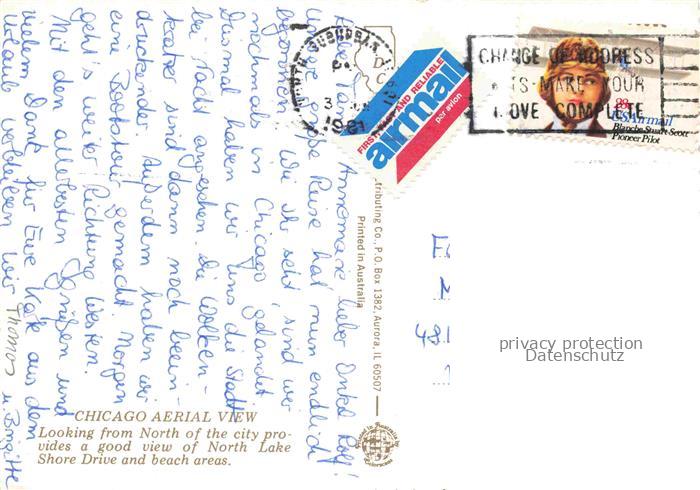 Liebe Tante Annemarie, lieber Onkel Rolf!
Unsere große Reise hat nun endlich
begonnen. Wie ihr seht, sind wir
nochmals in Chicago gelandet.
Diesmal haben wir uns die Stadt
bei Nacht angesehen. Die Wolken-
kratzer sind dann noch beein-
druckender. Außerdem haben wir
eine Bootstour gemacht. Morgen
geht's weiter Richtung Westen.
Mit den allerbesten Grüßen und
vielem Dank für Eure Karte aus dem
Urlaub verbleiben wir Thomas u. Birgitte
CHICAGO AERIAL VIEW
Looking from North of the city pro-
vides a good view of North Lake
Shore Drive and beach areas.
tributing Co., P.O. Box 1382, Aurora, IL 60507
Printed in Australia
FIRST CLASS AND RELIABLE
airmail
par avion
SUBURBAN
1981
CHANGE OF ADDRESS
LETS MAKE YOUR
MOVE COMPLETE
28c
USAirmail
Blanche Stuart Scott
Pioneer Pilot
48
privacy protection
Datenschutz